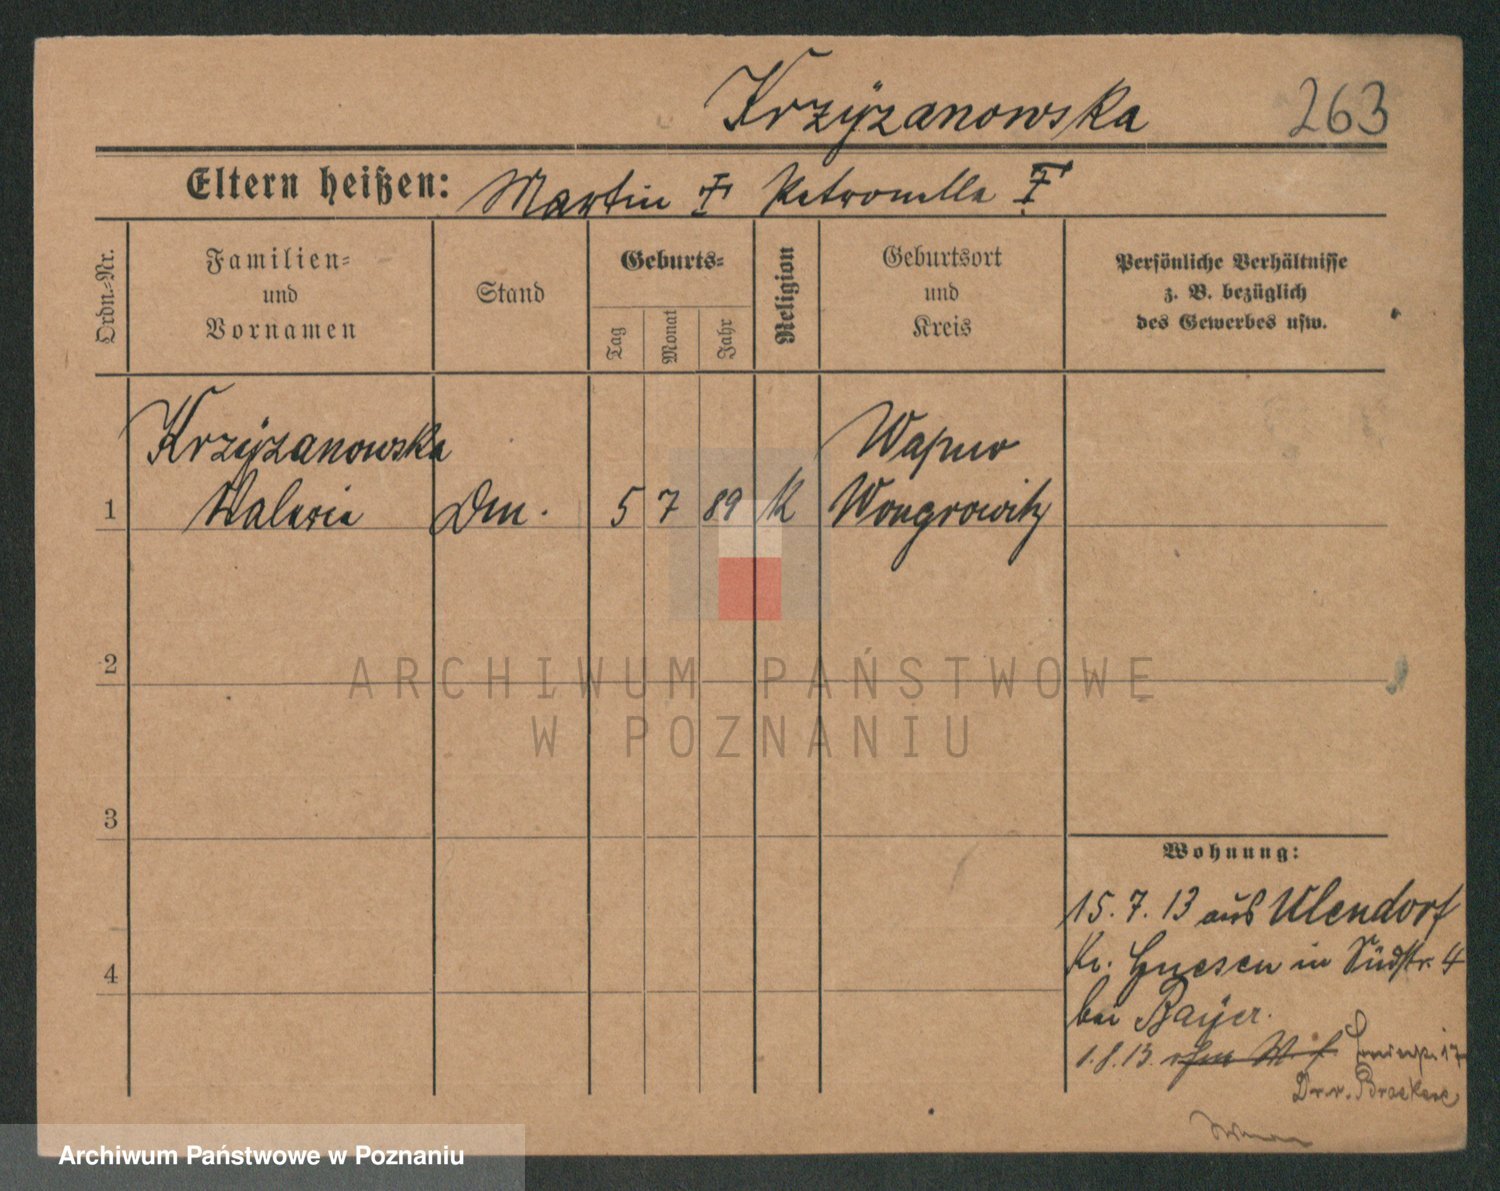 Krzÿzanowska 263
Eltern heißen: Martin † Petronella †
Ordn.-Nr.
Familien- und Vornamen
Stand
Geburts-
Tag
Monat
Jahr
Religion
Geburtsort und Kreis
Persönliche Verhältnisse
z. B. bezüglich
des Gewerbes usw.
Krzÿzanowska Wapno
1 Waleria Dm. 5 7 89 K Wongrowitz
2
ARCHIWUM PAŃSTWOWE
W POZNANIU
3
Wohnung:
15.7.13 aus Ulendorf
4
Kr. Gnesen in Südstr. 4
bei Baÿer.
1.8.13.
Archiwum Państwowe w Poznaniu